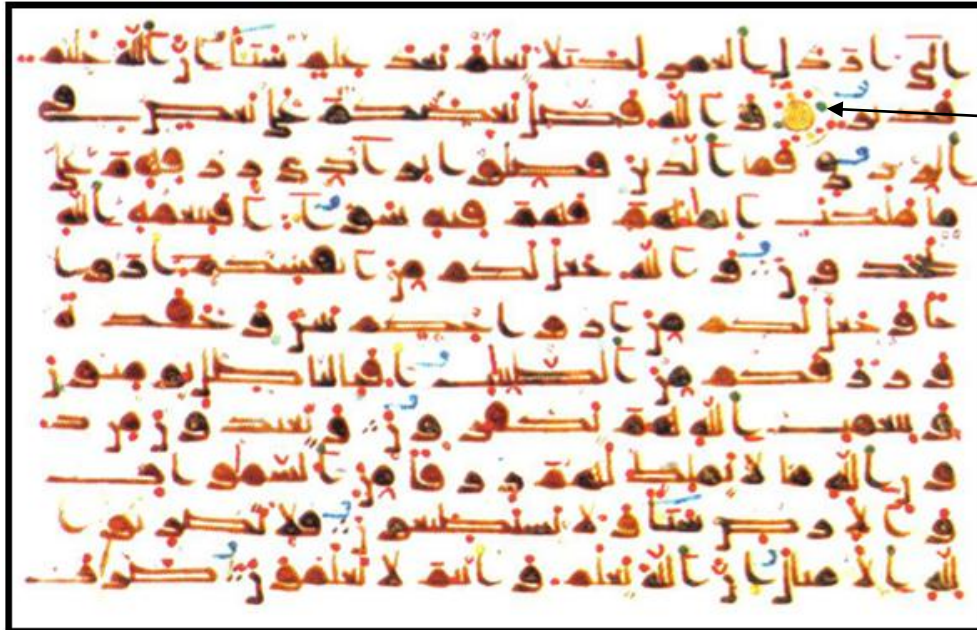 الى ارذل العمر لكيلا يعلم بعد علم شيئا ان الله عليم
قدير والله فضل بعضكم على بعض في
الرزق فما الذين فضلوا برادي رزقهم على
ما ملكت ايمنهم فهم فيه سواء افبنعمة الله
يجحدون والله جعل لكم من انفسكم ازوا
جا وجعل لكم من ازواجكم بنين وحفدة
ورزقكم من الطيبت افبالباطل يومنون
وبنعمت الله هم يكفرون ويعبدون من د
ون الله ما لا يملك لهم رزقا من السموات
والارض شيئا ولا يستطيعون فلا تضربوا
لله الامثال ان الله يعلم وانتم لا تعلمون ضرب